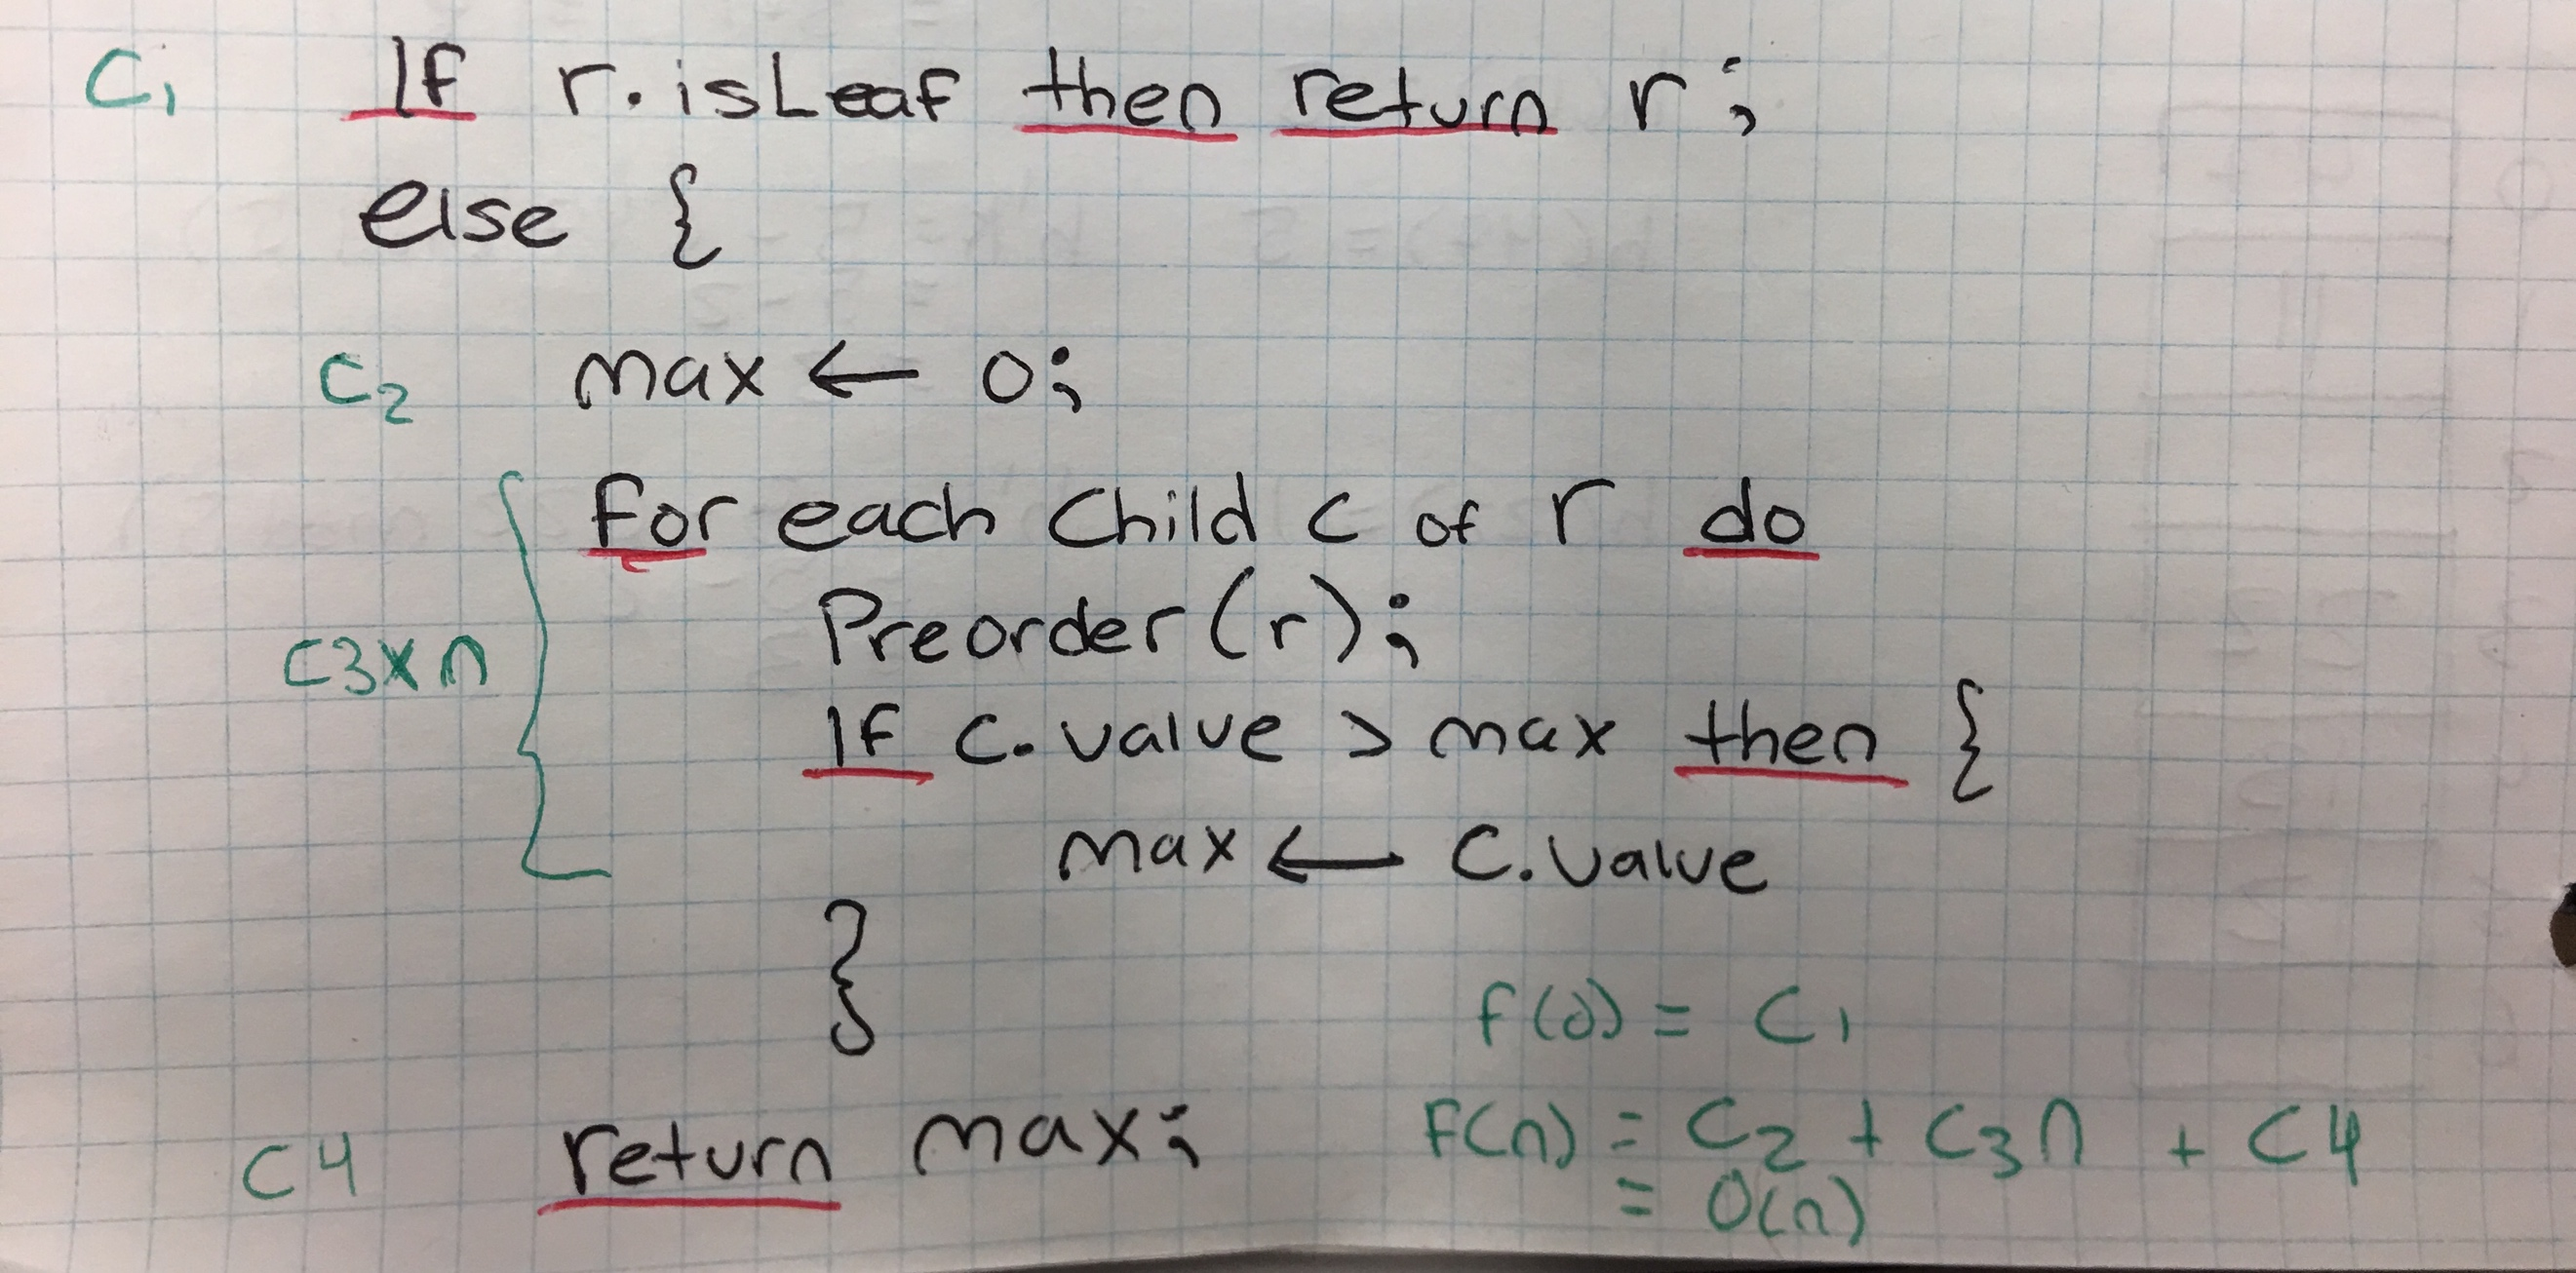 C1 If r.isLeaf then return r;
else {
C2 max ← 0;
for each child c of r do
Preorder(r);
C3xn
If c.value > max then {
max ← c.value
}
f(0) = C1
C4 return max;
F(n) = C2 + C3n + C4
= O(n)